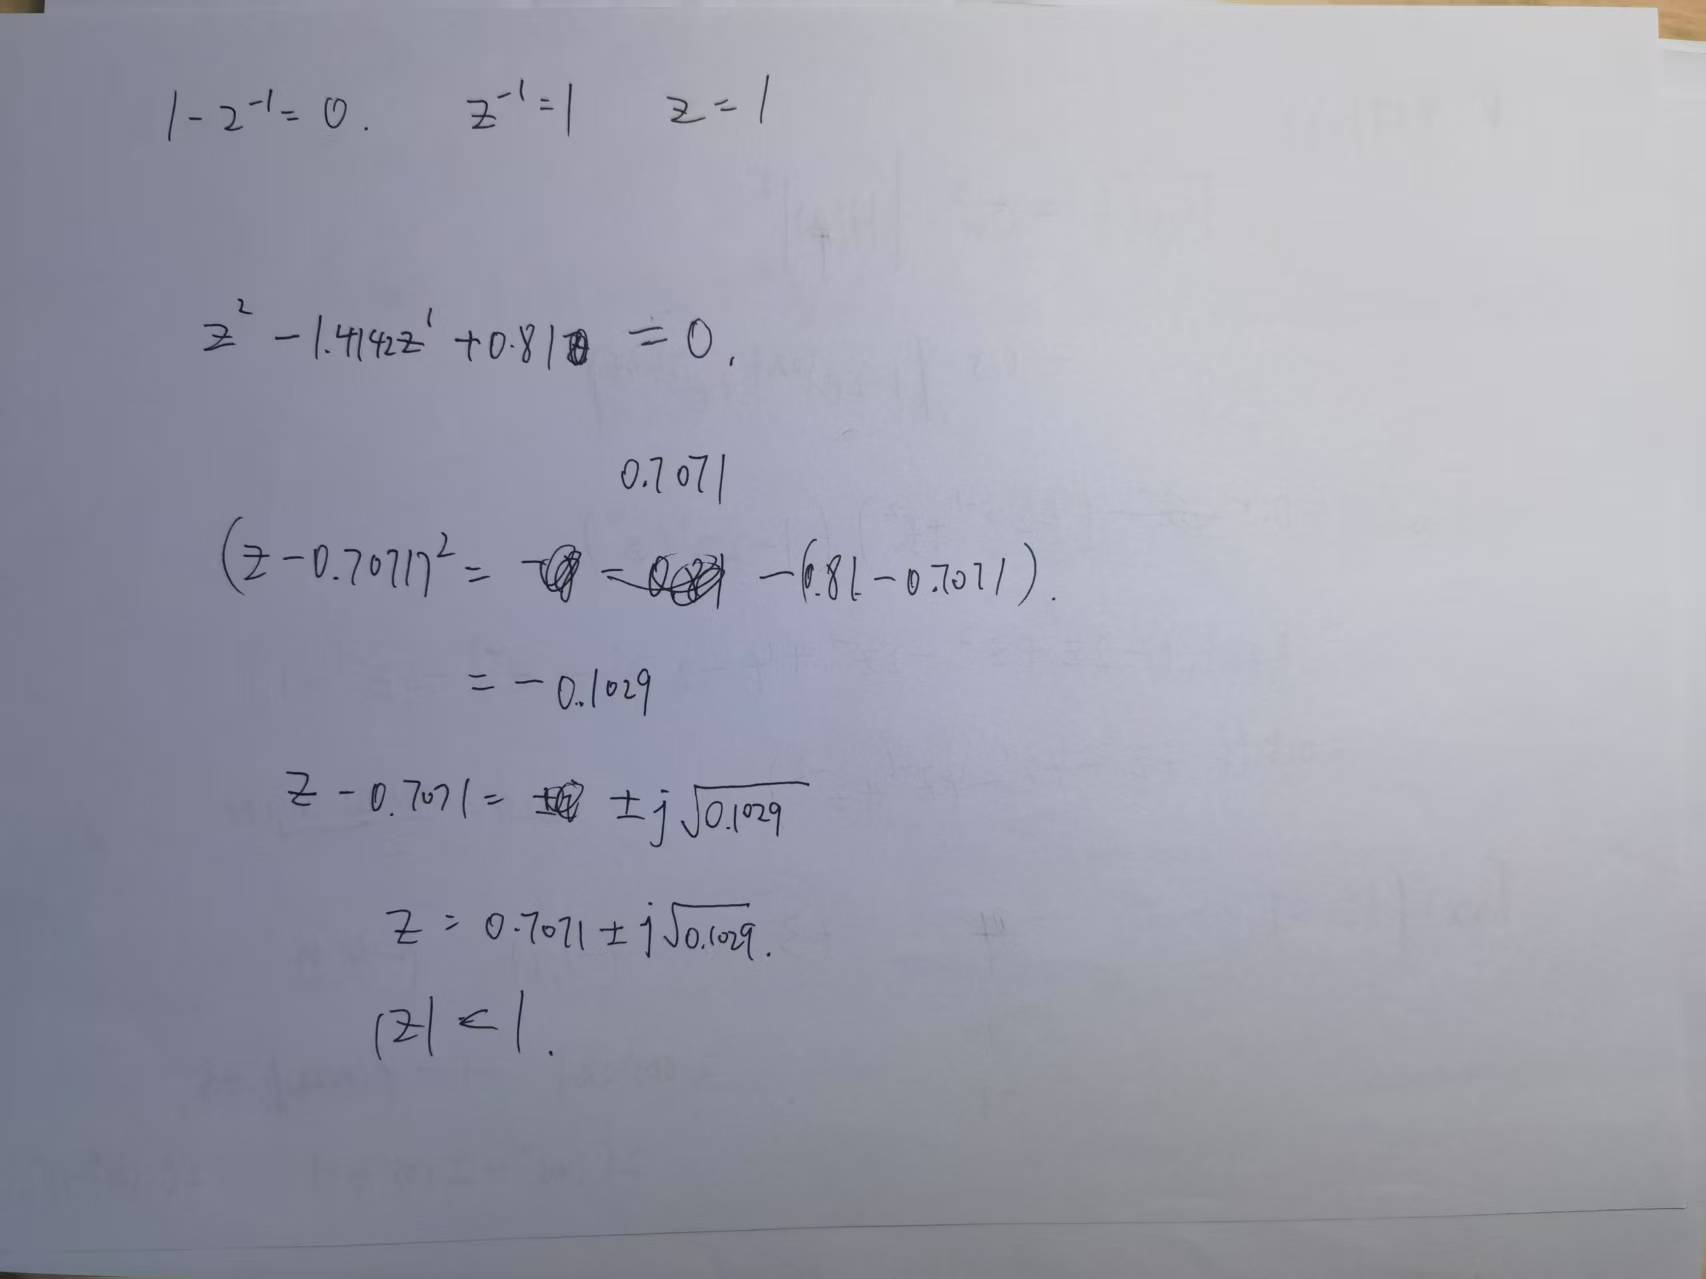 1 - z⁻¹ = 0. z⁻¹ = 1 z = 1
z² - 1.4142z¹ + 0.81 = 0.
0.7071
(z - 0.7071)² = - (0.81 - 0.7071).
= - 0.1029
z - 0.7071 = ± j√0.1029
z = 0.7071 ± j√0.1029.
|z| < 1.